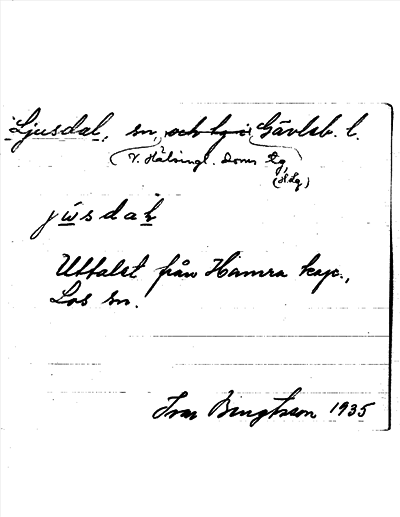 Ljusdal, sn, och tg i Gävleb. l.
V. Hälsingl. doms tg,
jusdal
Uttalet från Hamra kap.,
Los sn.
Ivar Bengtsson 1935